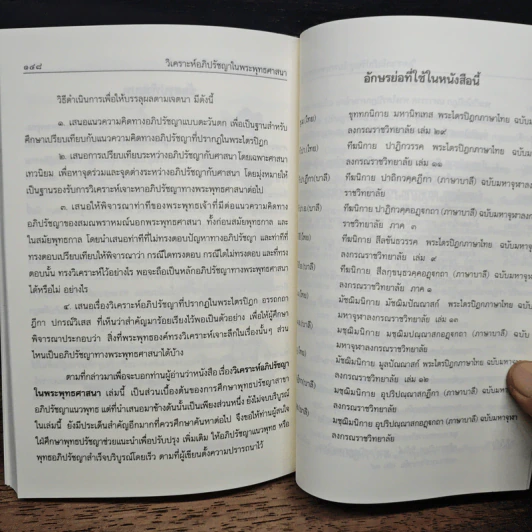 ๑๔๘
วิเคราะห์อภิปรัชญาในพระพุทธศาสนา
วิธีดำเนินการเพื่อให้บรรลุผลตามเจตนา มีดังนี้
๑. เสนอแนวความคิดทางอภิปรัชญาแบบตะวันตก เพื่อเป็นฐานสำหรับ
ศึกษาเปรียบเทียบกับแนวความคิดทางอภิปรัชญาที่ปรากฏในพระไตรปิฎก
๒. เสนอการเปรียบเทียบระหว่างอภิปรัชญากับศาสนา โดยเฉพาะศาสนา
เทวนิยม เพื่อหาจุดร่วมและจุดต่างระหว่างอภิปรัชญากับศาสนา โดยมุ่งหมายให้
เป็นฐานรองรับการวิเคราะห์เจาะหาอภิปรัชญาทางพระพุทธศาสนาต่อไป
๓. เสนอให้พิจารณาท่าทีของพระพุทธเจ้าที่มีต่อแนวความคิดทาง
อภิปรัชญาของสมณพราหมณ์นอกพระพุทธศาสนา ทั้งก่อนสมัยพุทธกาล และ
ในสมัยพุทธกาล โดยนำเสนอท่าทีที่ไม่ทรงตอบปัญหาทางอภิปรัชญา และท่าทีที่
ทรงตอบเปรียบเทียบให้พิจารณาว่า กรณีใดทรงตอบ กรณีใดไม่ทรงตอบ และที่ทรง
ตอบนั้น ทรงวิเคราะห์ไว้อย่างไร พอจะถือเป็นหลักอภิปรัชญาทางพระพุทธศาสนา
ได้หรือไม่ อย่างไร
๔. เสนอเรื่องวิเคราะห์อภิปรัชญาที่ปรากฏในพระไตรปิฎก อรรถกถา
ฎีกา ปกรณ์วิเสส ที่เห็นว่าสำคัญมาร้อยเรียงไว้พอเป็นตัวอย่าง เพื่อให้ผู้ศึกษา
พิจารณาประกอบว่า สิ่งที่พระพุทธองค์ทรงวิเคราะห์เจาะลึกในเรื่องนั้นๆ ส่วน
ไหนเป็นอภิปรัชญาทางพระพุทธศาสนาได้บ้าง
ตามที่กล่าวมาเพื่อจะบอกท่านผู้อ่านว่าหนังสือ เรื่องวิเคราะห์อภิปรัชญา
ในพระพุทธศาสนา เล่มนี้ เป็นส่วนเบื้องต้นของการศึกษาพุทธปรัชญาสาขา
อภิปรัชญาแนวพุทธ แต่ที่นำเสนอมาข้างต้นนั้นเป็นเพียงส่วนหนึ่ง ยังไม่จบบริบูรณ์
ในเล่มนี้ ยังมีประเด็นสำคัญอีกมากที่ควรศึกษาค้นหาต่อไป จึงขอให้ท่านผู้สนใจ
ใฝ่ศึกษาพุทธปรัชญาช่วยแนะนำเพื่อปรับปรุง เพิ่มเติม ให้อภิปรัชญาแนวพุทธ หรือ
พุทธอภิปรัชญาสำเร็จบริบูรณ์โดยเร็ว ตามที่ผู้เขียนตั้งความปรารถนาไว้
อักษรย่อที่ใช้ในหนังสือนี้
ขุททกนิกาย มหานิทเทส พระไตรปิฎกภาษาไทย ฉบับ
ลงกรณราชวิทยาลัย เล่ม ๒๙
ทีฆนิกาย ปาฏิกวรรค พระไตรปิฎกภาษาไทย ฉบับมหา
ลงกรณราชวิทยาลัย เล่ม ๑๑
ทีฆนิกาย ปาถิกวคฺคฏีกา (ภาษาบาลี) ฉบับมหาจุฬาลงกรณ
ราชวิทยาลัย
ทีฆนิกาย ปาฏิกวคฺคอฏฺฐกถา (ภาษาบาลี) ฉบับมหาจุฬาลงกรณ
ราชวิทยาลัย ภาค ๓
ทีฆนิกาย สีลขันธวรรค พระไตรปิฎกภาษาไทย ฉบับมหาจุฬา
ลงกรณราชวิทยาลัย เล่ม ๙
ทีฆนิกาย สีลกฺขนฺธวคฺคอฏฺฐกถา (ภาษาบาลี) ฉบับมหาจุฬา
ลงกรณราชวิทยาลัย ภาค ๑
มัชฌิมนิกาย มัชฌิมปัณณาสก์ พระไตรปิฎกภาษาไทย ฉบับ
มหาจุฬาลงกรณราชวิทยาลัย เล่ม ๑๓
มชฺฌิมนิกาย มชฺฌิมปณฺณาสกอฏฺฐกถา (ภาษาบาลี) ฉบับ
มหาจุฬาลงกรณราชวิทยาลัย
มัชฌิมนิกาย มูลปัณณาสก์ พระไตรปิฎกภาษาไทย ฉบับมหาจุฬา
ลงกรณราชวิทยาลัย เล่ม ๑๒
มชฺฌิมนิกาย อุปริปณฺณาสกอฏฺฐกถา (ภาษาบาลี) ฉบับมหาจุฬา
ลงกรณราชวิทยาลัย
มชฺฌิมนิกาย อุปริปณฺณาสกฏีกา (ภาษาบาลี) ฉบับมหาจุฬา
ลงกรณราชวิทยาลัย